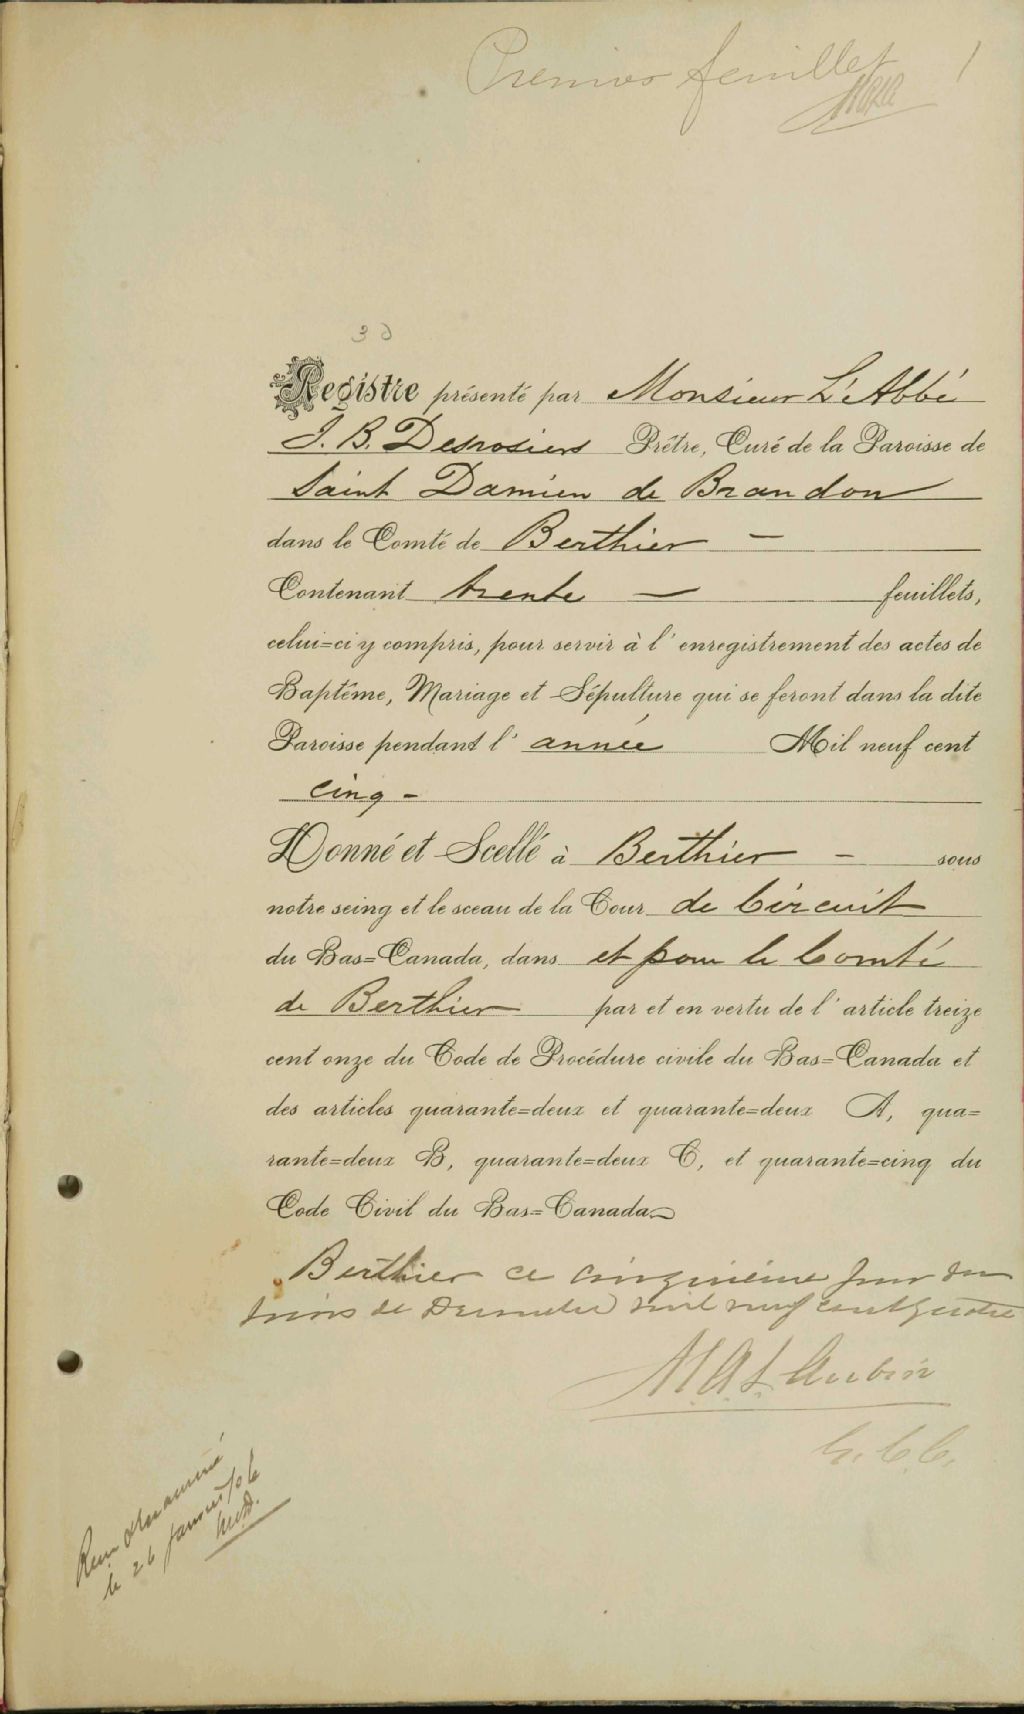 Premier feuillet 1
30
Registre présenté par Monsieur L'Abbé
J. B. Desrosiers Prêtre, Curé de la Paroisse de
Saint Damien de Brandon
dans le Comté de Berthier —
Contenant trente — feuillets,
celui=ci y compris, pour servir à l'enregistrement des actes de
Baptême, Mariage et Sépulture qui se feront dans la dite
Paroisse pendant l'année Mil neuf cent
cinq -
Donné et Scellé à Berthier - sous
notre seing et le sceau de la Cour de Circuit
du Bas=Canada, dans et pour le Comté
de Berthier par et en vertu de l'article treize
cent onze du Code de Procédure civile du Bas=Canada et
des articles quarante=deux et quarante=deux A, qua=
rante=deux B, quarante=deux C, et quarante=cinq du
Code Civil du Bas=Canada.
Berthier ce cinquième jour du
mois de Décembre mil neuf cent quatre
M.A. St. Aubin
G. C. C.
le 26 janvier 06